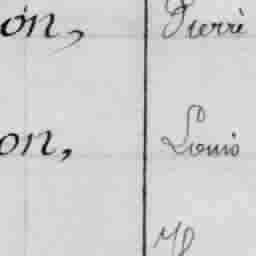 on, Pierre
on, Louis